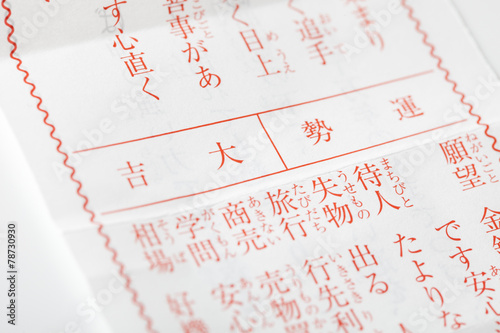 まり
く追手
く目上
喜事があ
す心直く
運勢
大吉
願望
です安
待人 たよりな
失物 出る
旅行 行先利
商売 売物
学問 安心
相場 好機
#78730930
Adobe Stock